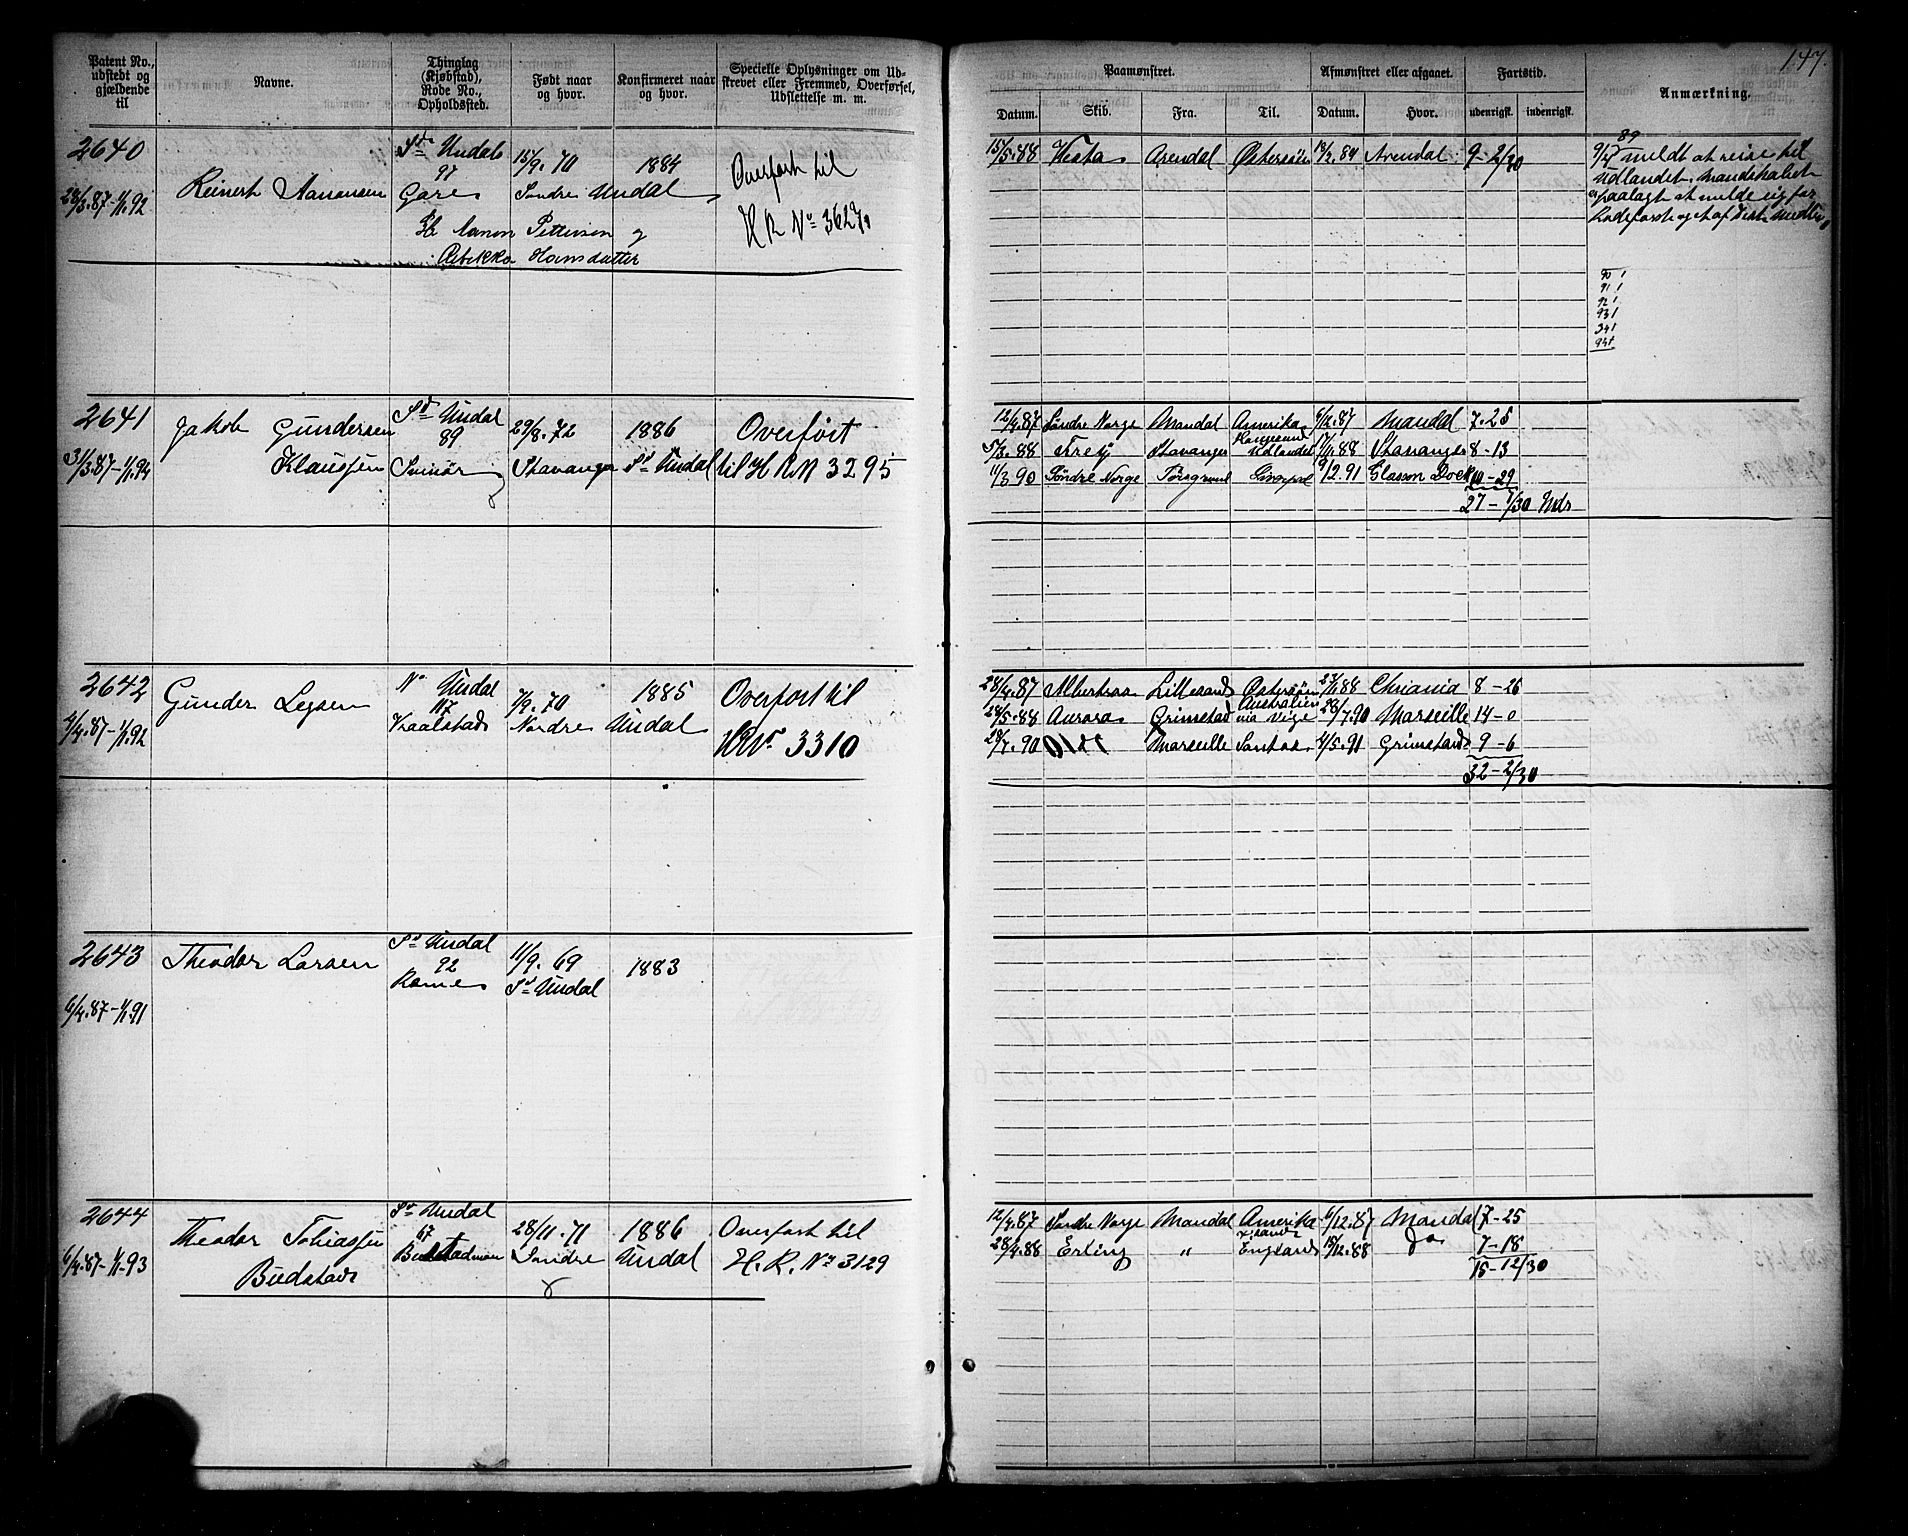 147.
Patent No., udstedt og gjældende til
Navne.
Thinglag (Kjøbstad), Rode No., Opholdssted.
Født naar og hvor.
Konfirmeret naar og hvor.
Specielle Oplysninger om Udskrevet eller Fremmed, Overførsel, Udslettelse m. m.
Paamønstret.
Afmønstret eller afgaaet.
Fartstid.
Anmærkning.
Datum.
Skib.
Fra.
Til.
Datum.
Hvor.
udenrigsk.
indenrigsk.
2640
28/3.87-1/1.92
Reinert Aanensen
Sd Undals
97
Gare
15/9.70
Søndre Undal
1884
Overført til
H R No 362
Aanen Pettersen og
Rebekka Hansdatter
15/5.88 Vesta Arendal Østersøen Arendal 9-2/30
89
meldt at reise til
Udlandet. Mandskabet
paalagt at melde sig for
90 1
91 1
92 1
93 1
2641
31/3.87-1/1.94
Jakob Gundersen
Klaussen
Sd Undal
89
Svinør
29/8.72
Stavanger
1886
Sd Undal
Overført
til H R N 3295
12/4.87 Søndre Norge Mandal Amerika 6/12.87 Mandal 7-25
5/3.88 Frey Stavanger Udlandet 17/11.88 Stavanger 8-13
11/3 90 Søndre Norge Liverpool 9/2.91 Glasson Dock 10-29
27-7/30 Mdr
2642
4/4.87-1/1.92
Gunder Leysen
N Undal
117
Kaalstad
7/9.70
Nordre Undal
1885
Overført til
HRNo 3310
28/4.87 Albertras Lillesand Østersøen 23/1.88 Chriania 8-26
28/5.88 Aurora Grimstad Australien
via Vige 28/7.90 Marseille 14-0
29/7.90 Marseille Santos 4/5.91 Grimstad 9-6
32-2/30
2643
6/4.87-1/1.91
Theodor Larsen
Sd Undal
92
Ramnes
11/9.69
Sd Undal
1883
2644
6/4.87-1/1.93
Theodor Tobiassen
Budstad
Sd Undal
67
28/11.71
Søndre Undal
1886
Overført til
H.R.No 3129
12/4.87 Søndre Norge Mandal Amerika 6/12.87 Mandal 7-25
28/4.88 Erling " England 15/12.88 Do 7-18
15-12/30